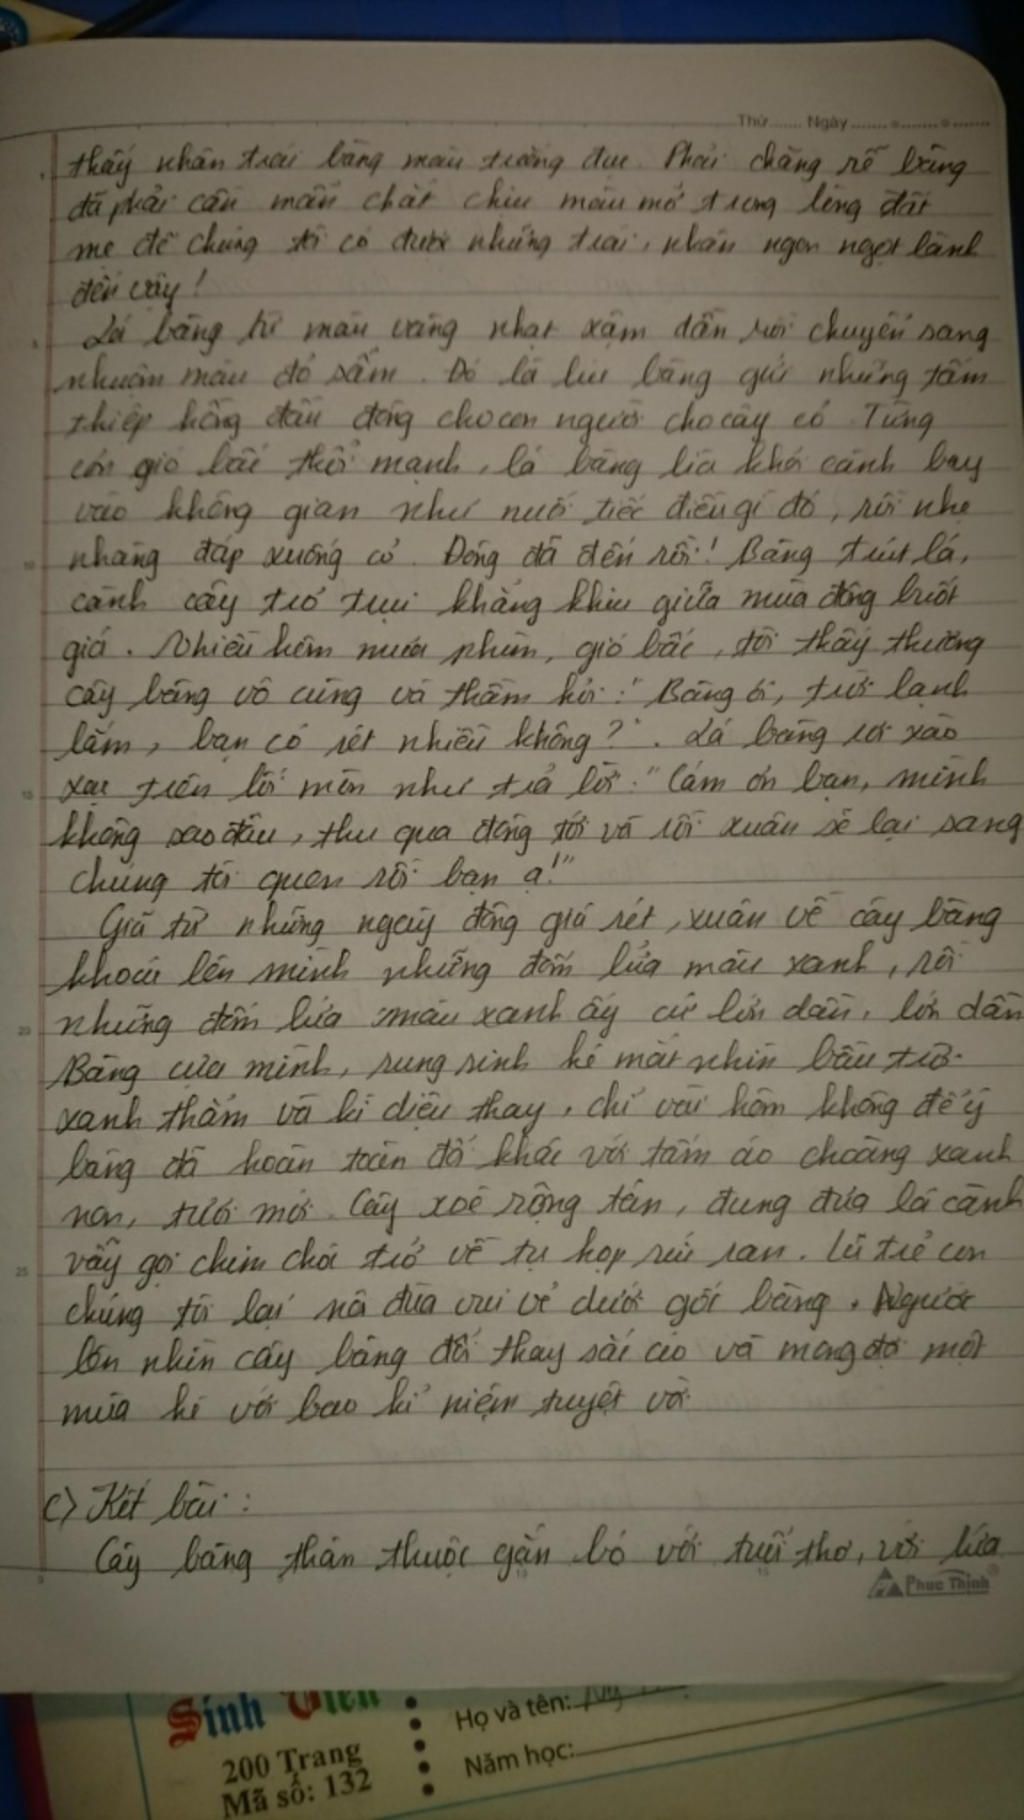 Thứ ....... Ngày ....... o ....... o .......
thấy nhân trái bàng màu trắng đục. Phải chăng rễ bàng
đã phải cần mẫn chắt chiu màu mỡ trong lòng đất
mẹ để chúng tôi có được những trái, nhân ngon ngọt lành
đến vậy!
Lá bàng từ màu vàng nhạt xậm dần rồi chuyển sang
nhuộm màu đỏ sẫm. Đó là lúc bàng gửi những tấm
thiệp hồng đầu đông cho con người cho cây cỏ. Từng
cơn gió bấc thổi mạnh, lá bàng lìa khỏi cành bay
vào không gian như nuối tiếc điều gì đó, rồi nhẹ
nhàng đáp xuống cỏ. Đông đã đến rồi! Bàng trút lá,
cành cây trơ trụi khẳng khiu giữa mùa đông buốt
giá. Nhiều hôm mưa phùn, gió bấc, tôi thấy thương
cây bàng vô cùng và thầm hỏi: "Bàng ơi, trời lạnh
lắm, bạn có rét nhiều không?". Lá bàng rơi xào
xạc trên lối mòn như trả lời: "Cám ơn bạn, mình
không sao đâu, thu qua đông tới và rồi xuân sẽ lại sang
chúng tôi quen rồi bạn ạ!"
Giã từ những ngày đông giá rét, xuân về cây bàng
khoác lên mình những đốm lửa màu xanh, rồi
những đốm lửa màu xanh ấy cứ lớn dần, lớn dần
Bàng cựa mình, rung rinh hé mắt nhìn bầu trời
xanh thẳm và kì diệu thay, chỉ vài hôm không để ý
bàng đã hoàn toàn đổi khác với tấm áo choàng xanh
non, tươi mới. Cây xoè rộng tán, đung đưa lá cành
vẫy gọi chim chóc trở về tụ họp ríu ran. Lũ trẻ con
chúng tôi lại nô đùa vui vẻ dưới gốc bàng. Người
lớn nhìn cây bàng đổi thay sắc áo và mong đợi một
mùa hè với bao kỉ niệm tuyệt vời
c) Kết bài:
Cây bàng thân thuộc gắn bó với tuổi thơ, với lứa
Phuc Thinh
Sinh Viên
200 Trang
Mã số: 132
Họ và tên:
Năm học: